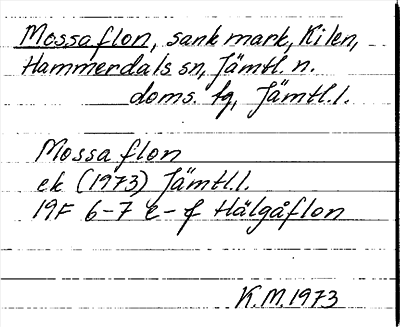 Mossaflon, sank mark, Kilen,
Hammerdals sn, Jämtl. n.
doms. tg, Jämtl. l.
Mossaflon
ek (1973) Jämtl. l.
19F 6-7 e-f Hälgåflon
K.M. 1973